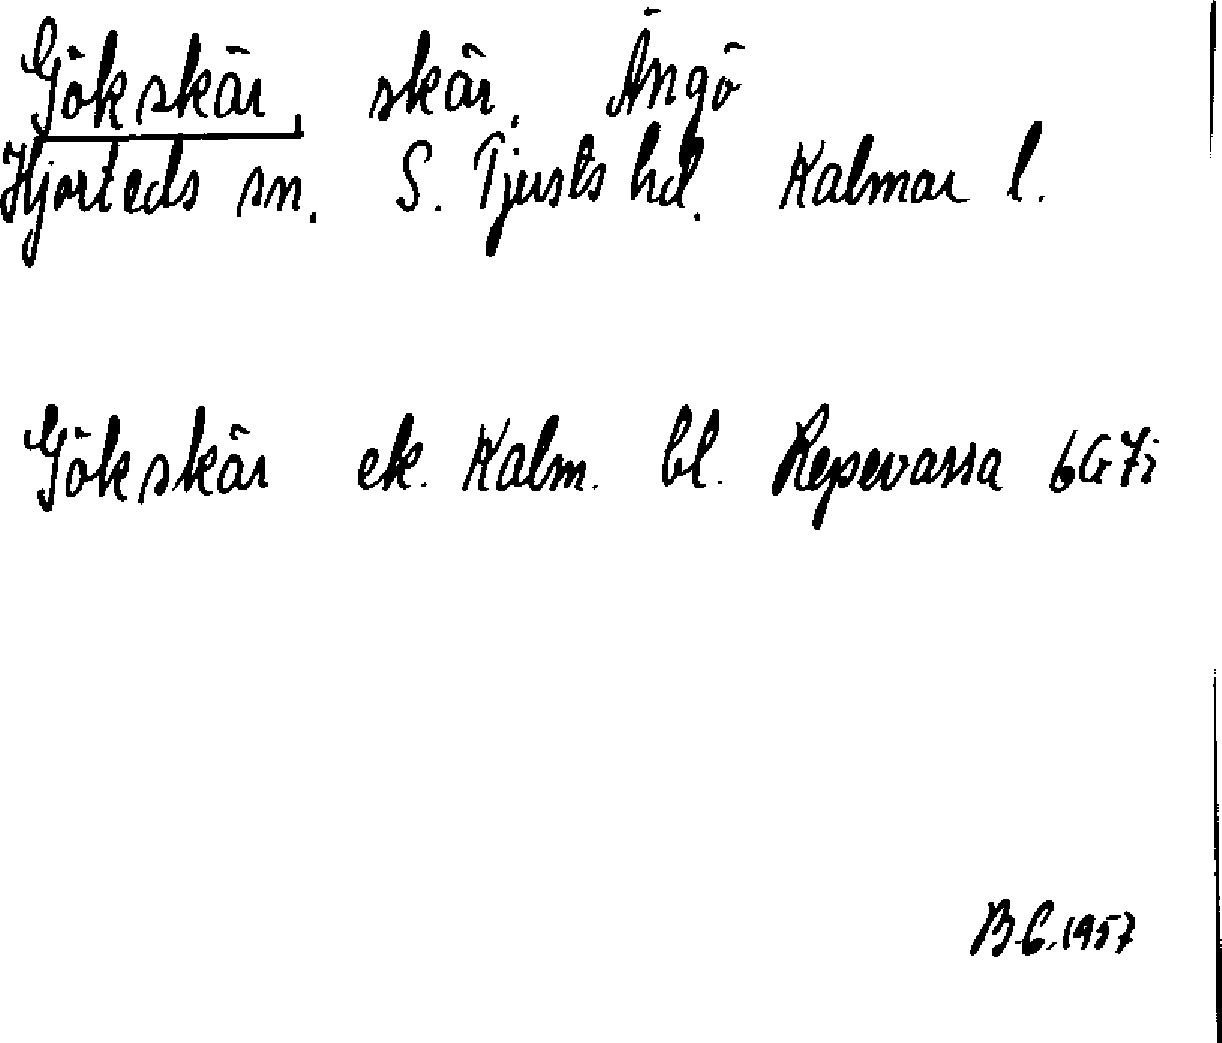 Gökskär, skär, Ängö
Hjorteds sn. S. Tjusts hd. Kalmar l.
Gökskär ek. Kalm. bl. Repevassa 6G7i
B.G. 1957